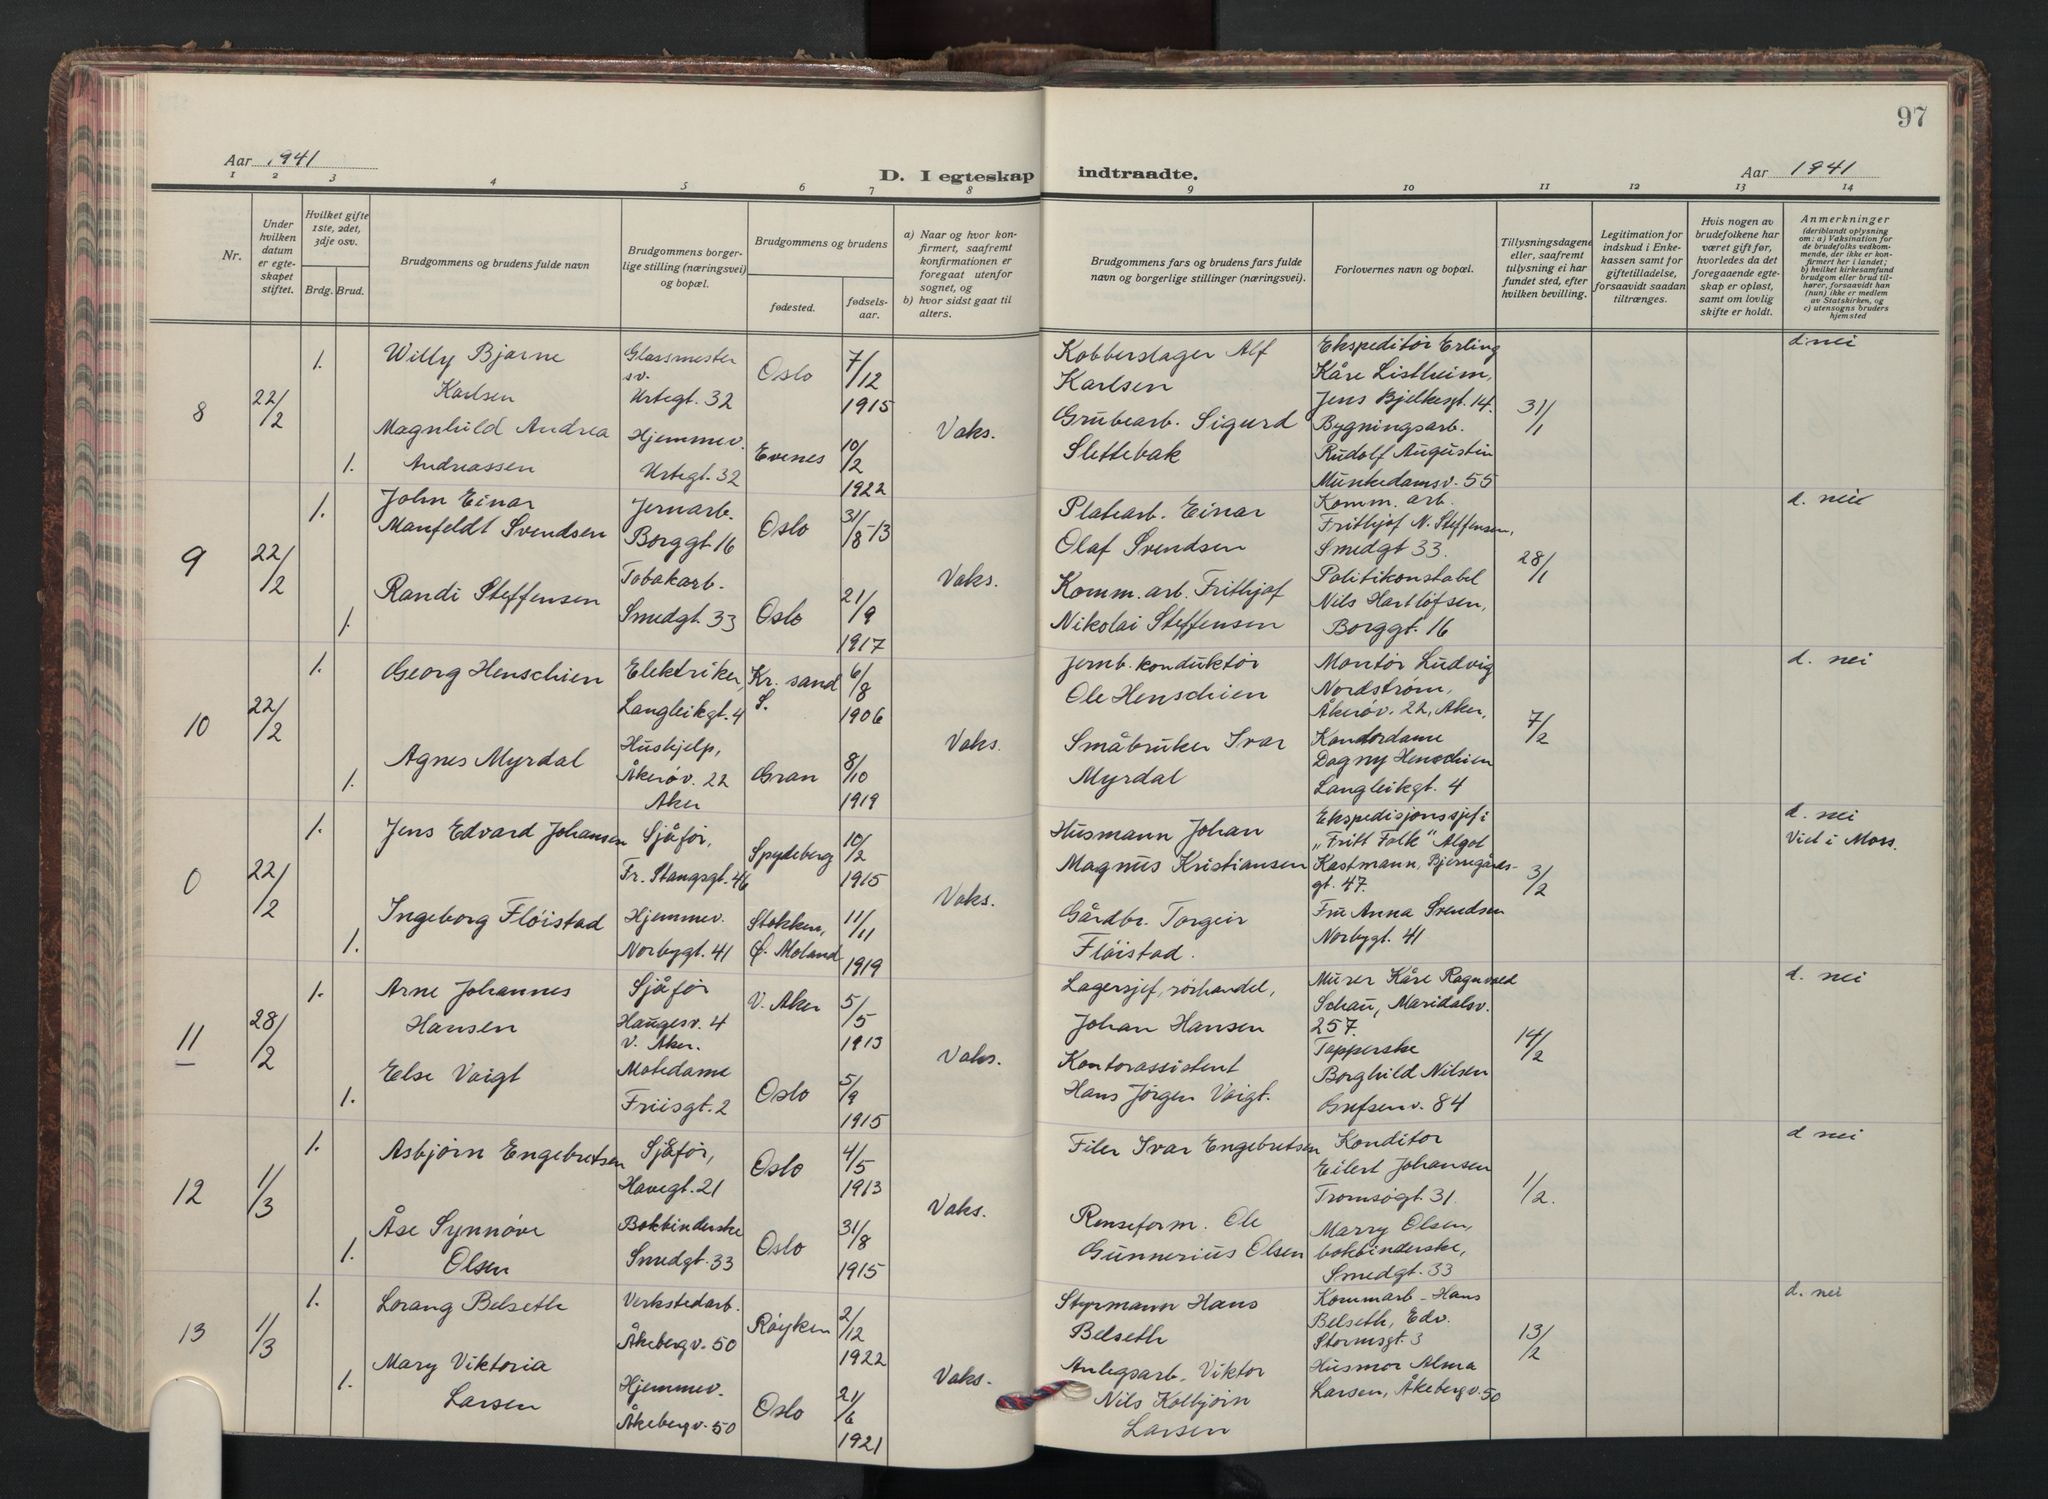 97
Aar 1941
D. I egteskap indtraadte.
Aar 1941
1 2 3 4 5 6 7 8 9 10 11 12 13 14
Nr.
Under hvilken datum er egteskapet stiftet.
Hvilket gifte 1ste, 2det, 3dje osv.
Brdg. Brud.
Brudgommens og brudens fulde navn
Brudgommens borgerlige stilling (næringsvei) og bopæl.
Brudgommens og brudens
fødested.
fødselsaar.
a) Naar og hvor konfirmert, saafremt konfirmationen er foregaat utenfor sognet, og
b) hvor sidst gaat til alters.
Brudgommens fars og brudens fars fulde navn og borgerlige stillinger (næringsvei).
Forlovernes navn og bopæl.
Tillysningsdagene eller, saafremt tillysning ei har fundet sted, efter hvilken bevilling.
Legitimation for indskud i Enkekassen samt for giftetilladelse, forsaavidt saadan tiltrænges.
Hvis nogen av brudefolkene har været gift før, hvorledes da det foregaaende egteskap er opløst, samt om lovlig skifte er holdt.
Anmerkninger (deriblandt oplysning om: a) Vaksination for de brudefolks vedkommende, der ikke er konfirmert her i landet; b) hvilket kirkesamfund brudgom eller brud tilhører, forsaavidt han (hun) ikke er medlem av Statskirken, og c) utensogns bruders hjemsted
8 22/2 1. Willy Bjarne Karlsen
Glassmestersv. Urtegt. 32
Oslo 7/12 1915
Kobberslager Alf Karlsen
Ekspeditør Erling Kåre Listheim, Jens Bjelkesgt. 14.
31/1
d. nei
1. Magnhild Andrea Andreassen
Hjemmev. Urtegt. 32
Evenes 10/2 1922
Vaks.
Grubearb. Sigurd Slettebak
Bygningsarb. Rudolf Augustin Munkedamsv. 55
9 22/2 1. John Einar Manfeldt Svendsen
Jernarb. Borggt. 16
Oslo 31/8-13
Platearb. Einar Olaf Svendsen
Komm. arb. Frithjof N. Steffensen, Smedgt 33.
28/1
d. nei
1. Randi Steffensen
Tobakarb. Smedgt. 33
Oslo 21/9 1917
Vaks.
Komm. arb. Frithjof Nikolai Steffensen
Politikonstabel Nils Hartløfsen, Borggt. 16
10 22/2 1. Georg Henschien
Elektriker, Langleikgt. 4
Kr. sand S. 6/8 1906
Jernb. konduktør Ole Henschien
Montør Ludvig Nordstrøm, Åkerøv. 22, Aker,
7/2
d. nei
1. Agnes Myrdal
Hushjelp, Åkerøv. 22 Aker
Gran 8/10 1919
Vaks.
Småbruker Ivar Myrdal
Kontordame Dagny Henschien Langleikgt. 4
0 22/2 1. Jens Edvard Johansen
Sjåfør, Fr. Stangsgt. 46
Spydeberg 10/2 1915
Husmann Johan Magnus Kristiansen
Ekspedisjonssjef i "Fritt Folk" Algot Kastmann, Bjerregårdsgt. 47.
3/2
d. nei
Viet i Moss.
1. Ingeborg Fløistad
Hjemmev. Norbygt. 41
Stokken, Ø. Moland 11/11 1919
Vaks.
Gårdbr. Torgeir Fløistad.
Fru Anna Svendsen Norbygt. 41
11 28/2 1. Arne Johannes Hansen
Sjåfør Haugesv. 4 V. Aker.
V. Aker 5/5 1913
Lagersjef, rørhandel, Johan Hansen
Murer Kåre Ragnvald Schau, Maridalsv. 257.
14/2
d. nei
1. Else Voigt
Motedame Friisgt. 2
Oslo 5/9 1915
Vaks.
Kontorassistent Hans Jørgen Voigt.
Tapperske Borghild Nilsen Grefsenv. 84
12 1/3 1. Asbjørn Engebretsen
Sjåfør, Havegt. 21
Oslo 4/5 1913
Filer Ivar Engebretsen
Konditor Eilert Johansen Tromsøgt. 31.
1/2.
d nei
1. Åse Synnøve Olsen
Bokbinderske Smedgt. 33
Oslo 31/8 1915
Vaks.
Renseform. Ole Gunnerius Olsen
Marry Olsen, bokbinderske, Smedgt. 33
13 1/3 1. Lorang Belseth
Verkstedarb. Åkebergv. 50
Røyken 2/12 1922
Styrmann Hans Belseth
Kommarb. Hans Belseth, Edv. Stormsgt. 3
13/2
d. nei
1. Mary Viktoria Larsen
Hjemmev. Åkebergv. 50
Oslo 21/6 1921
Vaks.
Anlegsarb. Viktor Nils Kolbjørn Larsen
Husmor Alma Larsen, Åkebergv. 50